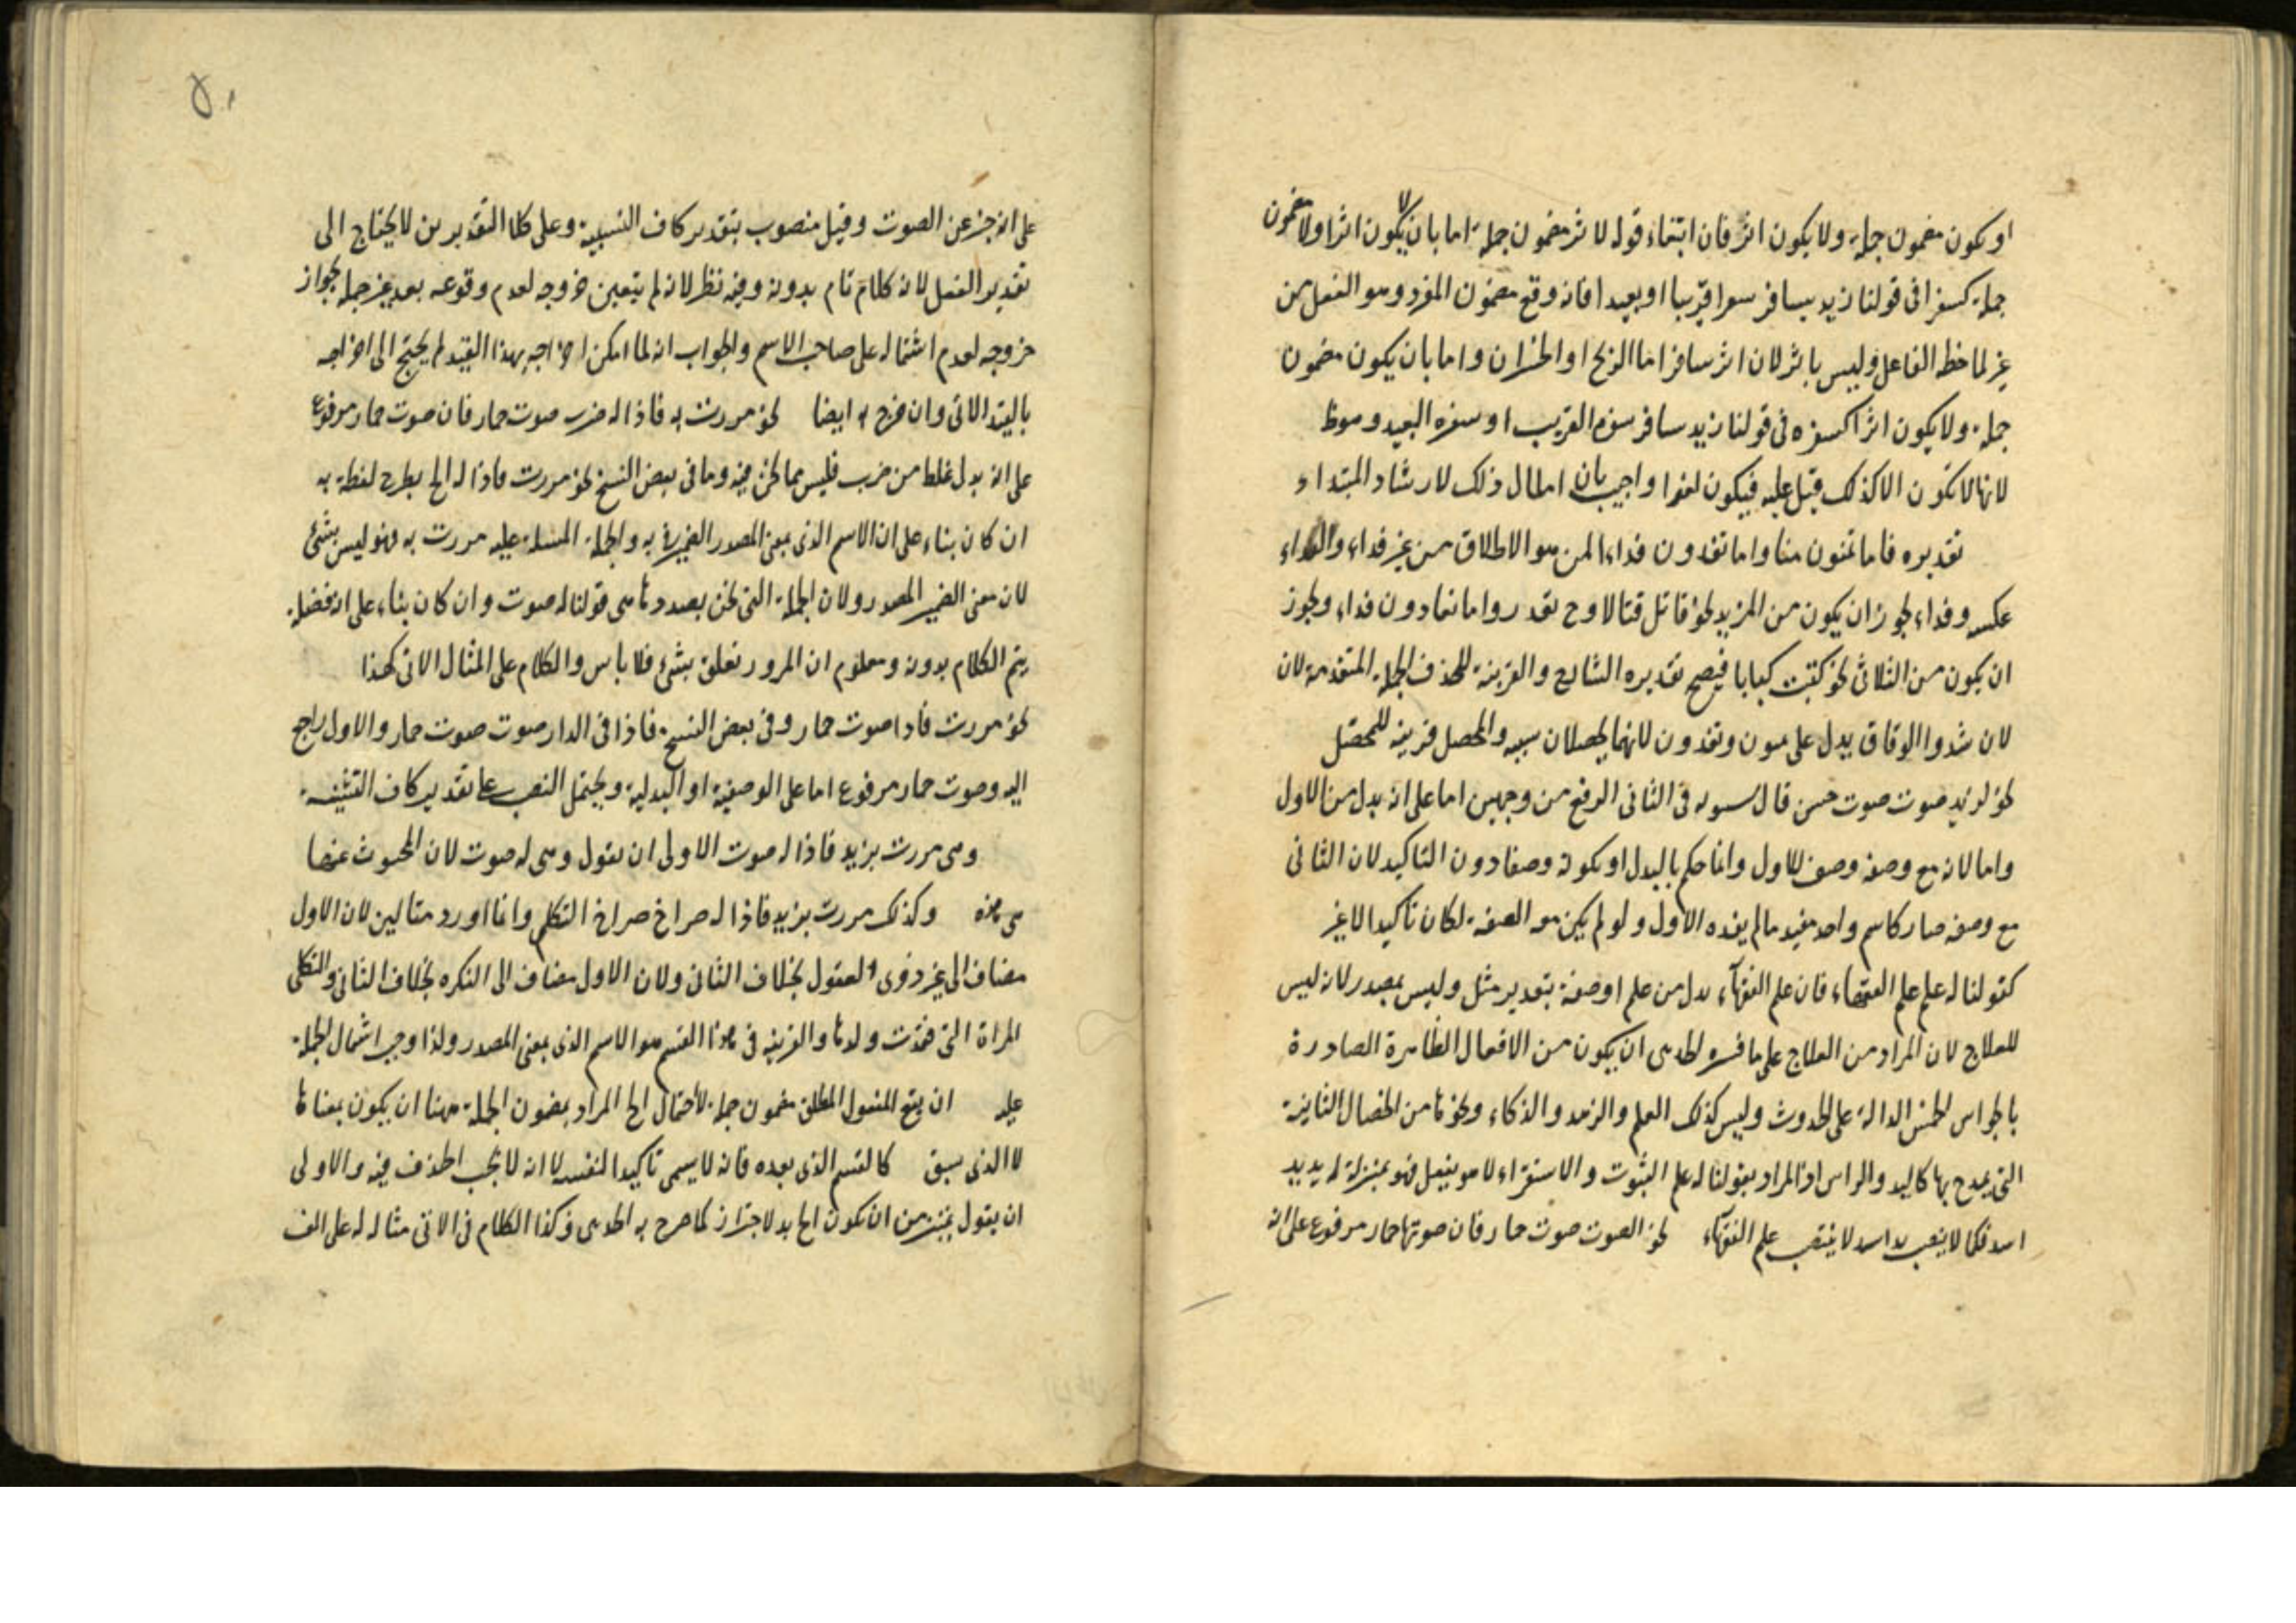 او يكون مضمون جملة ولا يكون اثر فان انتفاء قوله لاثر مضمون جملة اما بان لا يكون اثرا ولا مضمون
جملة كسفرا فى قولنا زيد يسافر سفرا قريبا او بعيدا فانه وقع مضمون المفرد وهو الفعل من
غير لملاحظة الفاعل وليس باثر لان اثر سافر اما الربح او الخسران واما بان يكون مضمون
جملة ولا يكون اثرا كسفره فى قولنا زيد سافر سفره القريب او سفره البعيد
لانها لا تكون الا كذلك قبل عليه فيكون لغوا واجيب بان امثال ذلك لارشاد المبتداء
تقديره فاما تمنون منا واما تفدون فداء المن هو الاطلاق من غير فداء والفداء
عكسه وفداء يجوز ان يكون من المزيد نحو قاتل قتالا وح يقدر واما تفادون فداء ويجوز
ان يكون من الثلاثى نحو كتبت كتابا فيصح تقديره الشارح والقرينة للحذف الجملة المتقدمة لان
لان شدوا الوثاق يدل على تمنون وتفدون لانهما يحصلان بسببه والمحصل قرينة للمحصل
نحو لزيد صوت صوت حسن قال سيبويه فى الثانى الرفع من وجهين اما على انه بدل من الاول
واما لانه مع وصفه وصف للاول وانما حكم بالبدل او بكونه وصفا دون التاكيد لان الثانى
مع وصفه صار كاسم واحد مفيد مالم يفده الاول ولو لم يكن هو الصفة لكان تاكيدا لا غير
كقولنا له علم علم الفقهاء فان علم الفقهاء بدل من علم او صفة بتقدير مثل وليس بمصدر لانه ليس
للعلاج لان المراد من العلاج على ما فسره الحديثى ان يكون من الافعال الظاهرة الصادرة
بالحواس الخمس الدالة على الحدوث وليس كذلك العلم والزهد والذكاء ونحوها من الخصال الثابتة
التى يمدح بها كاليد والراس اذ المراد بقولنا له علم الثبوت والاستقراء لا هو يفعل فهو بمنزلة له يد يد
اسد فكما لا ينصب يد اسد لا ينتصب علم الفقهاء نحو الصوت صوت حمار فان صوتها حمار مرفوع على انه
٥٠
على انه خبر عن الصوت وقيل منصوب بتقدير كاف التشبيه وعلى كلا التقديرين لا يحتاج الى
تقدير الفعل لانه كلام تام بدونه وفيه نظر لانه لم يتعين خروجه لعدم وقوعه بعد غير جملة لجواز
خروجه لعدم اشتماله على صاحب الاسم والجواب انه لما امكن اخراجه بهذا القيد لم يحتج الى اخراجه
بالقيد الاتى وان خرج به ايضا نحو مررت به فاذا له ضرب صوت حمار فان صوت حمار مرفوع
على انه بدل غلط من ضرب فليس مما نحن فيه وما فى بعض النسخ نحو مررت فاذا له الخ بطرح لفظة به
ان كان بناء على ان الاسم الذى بمعنى المصدر الضمير فى به والجملة المشتملة عليه مررت به فهو ليس بشئ
لان معنى الضمير المصدر ولان الجملة التى نحن بصددها هى قولنا له صوت وان كان بناء على انه فضلة
يتم الكلام بدونه ومعلوم ان المرور تعلق بشئ فلا باس والكلام على المثال الاتى كهذا
نحو مررت فاذا صوت حمار وفى بعض النسخ فاذا فى الدار صوت صوت حمار والاول راجح
اليه وصوت حمار مرفوع اما على الوصفية او البدلية ويحتمل النصب على تقدير كاف التشبيه
وهى مررت بزيد فاذا له صوت الاولى ان يقول وهى له صوت لان المحبوث عنها
هى هذه وكذلك مررت بزيد فاذا له صراخ صراخ الثكلى وانما اورد مثالين لان الاول
مضاف الى غير ذوى العقول بخلاف الثانى ولان الاول مضاف الى النكره بخلاف الثانى والثكلى
المراة التى فقدت ولدها والقرينة فى هذا القسم هو الاسم الذى بمعنى المصدر ولذا وجب اشتمال الجملة
عليه ان يقع المفعول المطلق مضمون جملة لا احتمال الخ المراد بمضمون الجملة ههنا ان يكون بمعناها
لا الذى سبق كالقسم الذى بعده فانه لا يسمى تاكيدا لنفسه لا انه لا يجب الحذف فيه والاولى
ان يقول من ان يكون الخ بدلا كما صرح به الحديثى وكذا الكلام فى الاتى مثاله له على الف